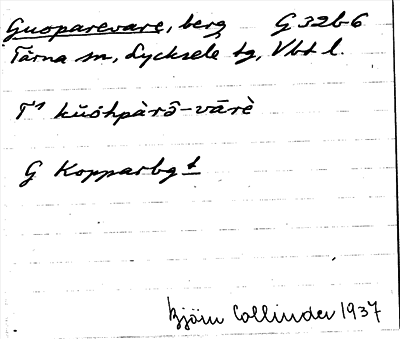 Guoparevare, berg G 32b6
Tärna sn, Lycksele tg, Vbt l.
T¹ kŭóhpàrô-vārè
G Kopparbgt
Björn Collinder 1937